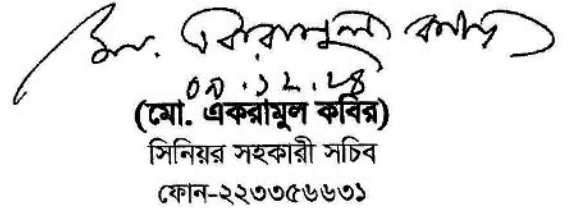 মো. একরামুল কবির
(মো. একরামুল কবির)
সিনিয়র সহকারী সচিব
ফোন-২২৩৩৫৬৬৩১